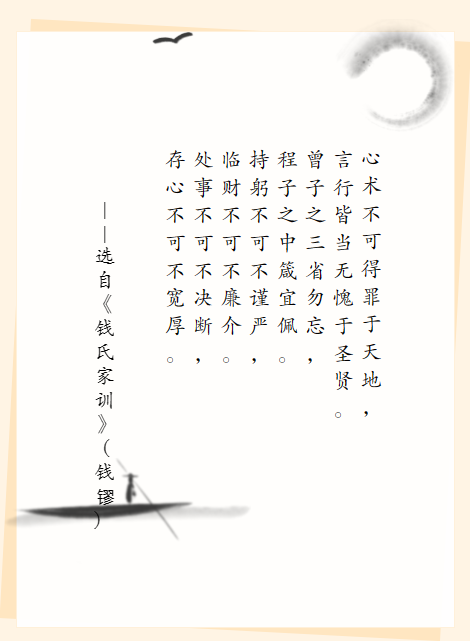 心术不可得罪于天地，
言行皆当无愧于圣贤。
曾子之三省勿忘，
程子之中箴宜佩。
持躬不可不谨严，
临财不可不廉介。
处事不可不决断，
存心不可不宽厚。
——选自《钱氏家训》（钱镠）